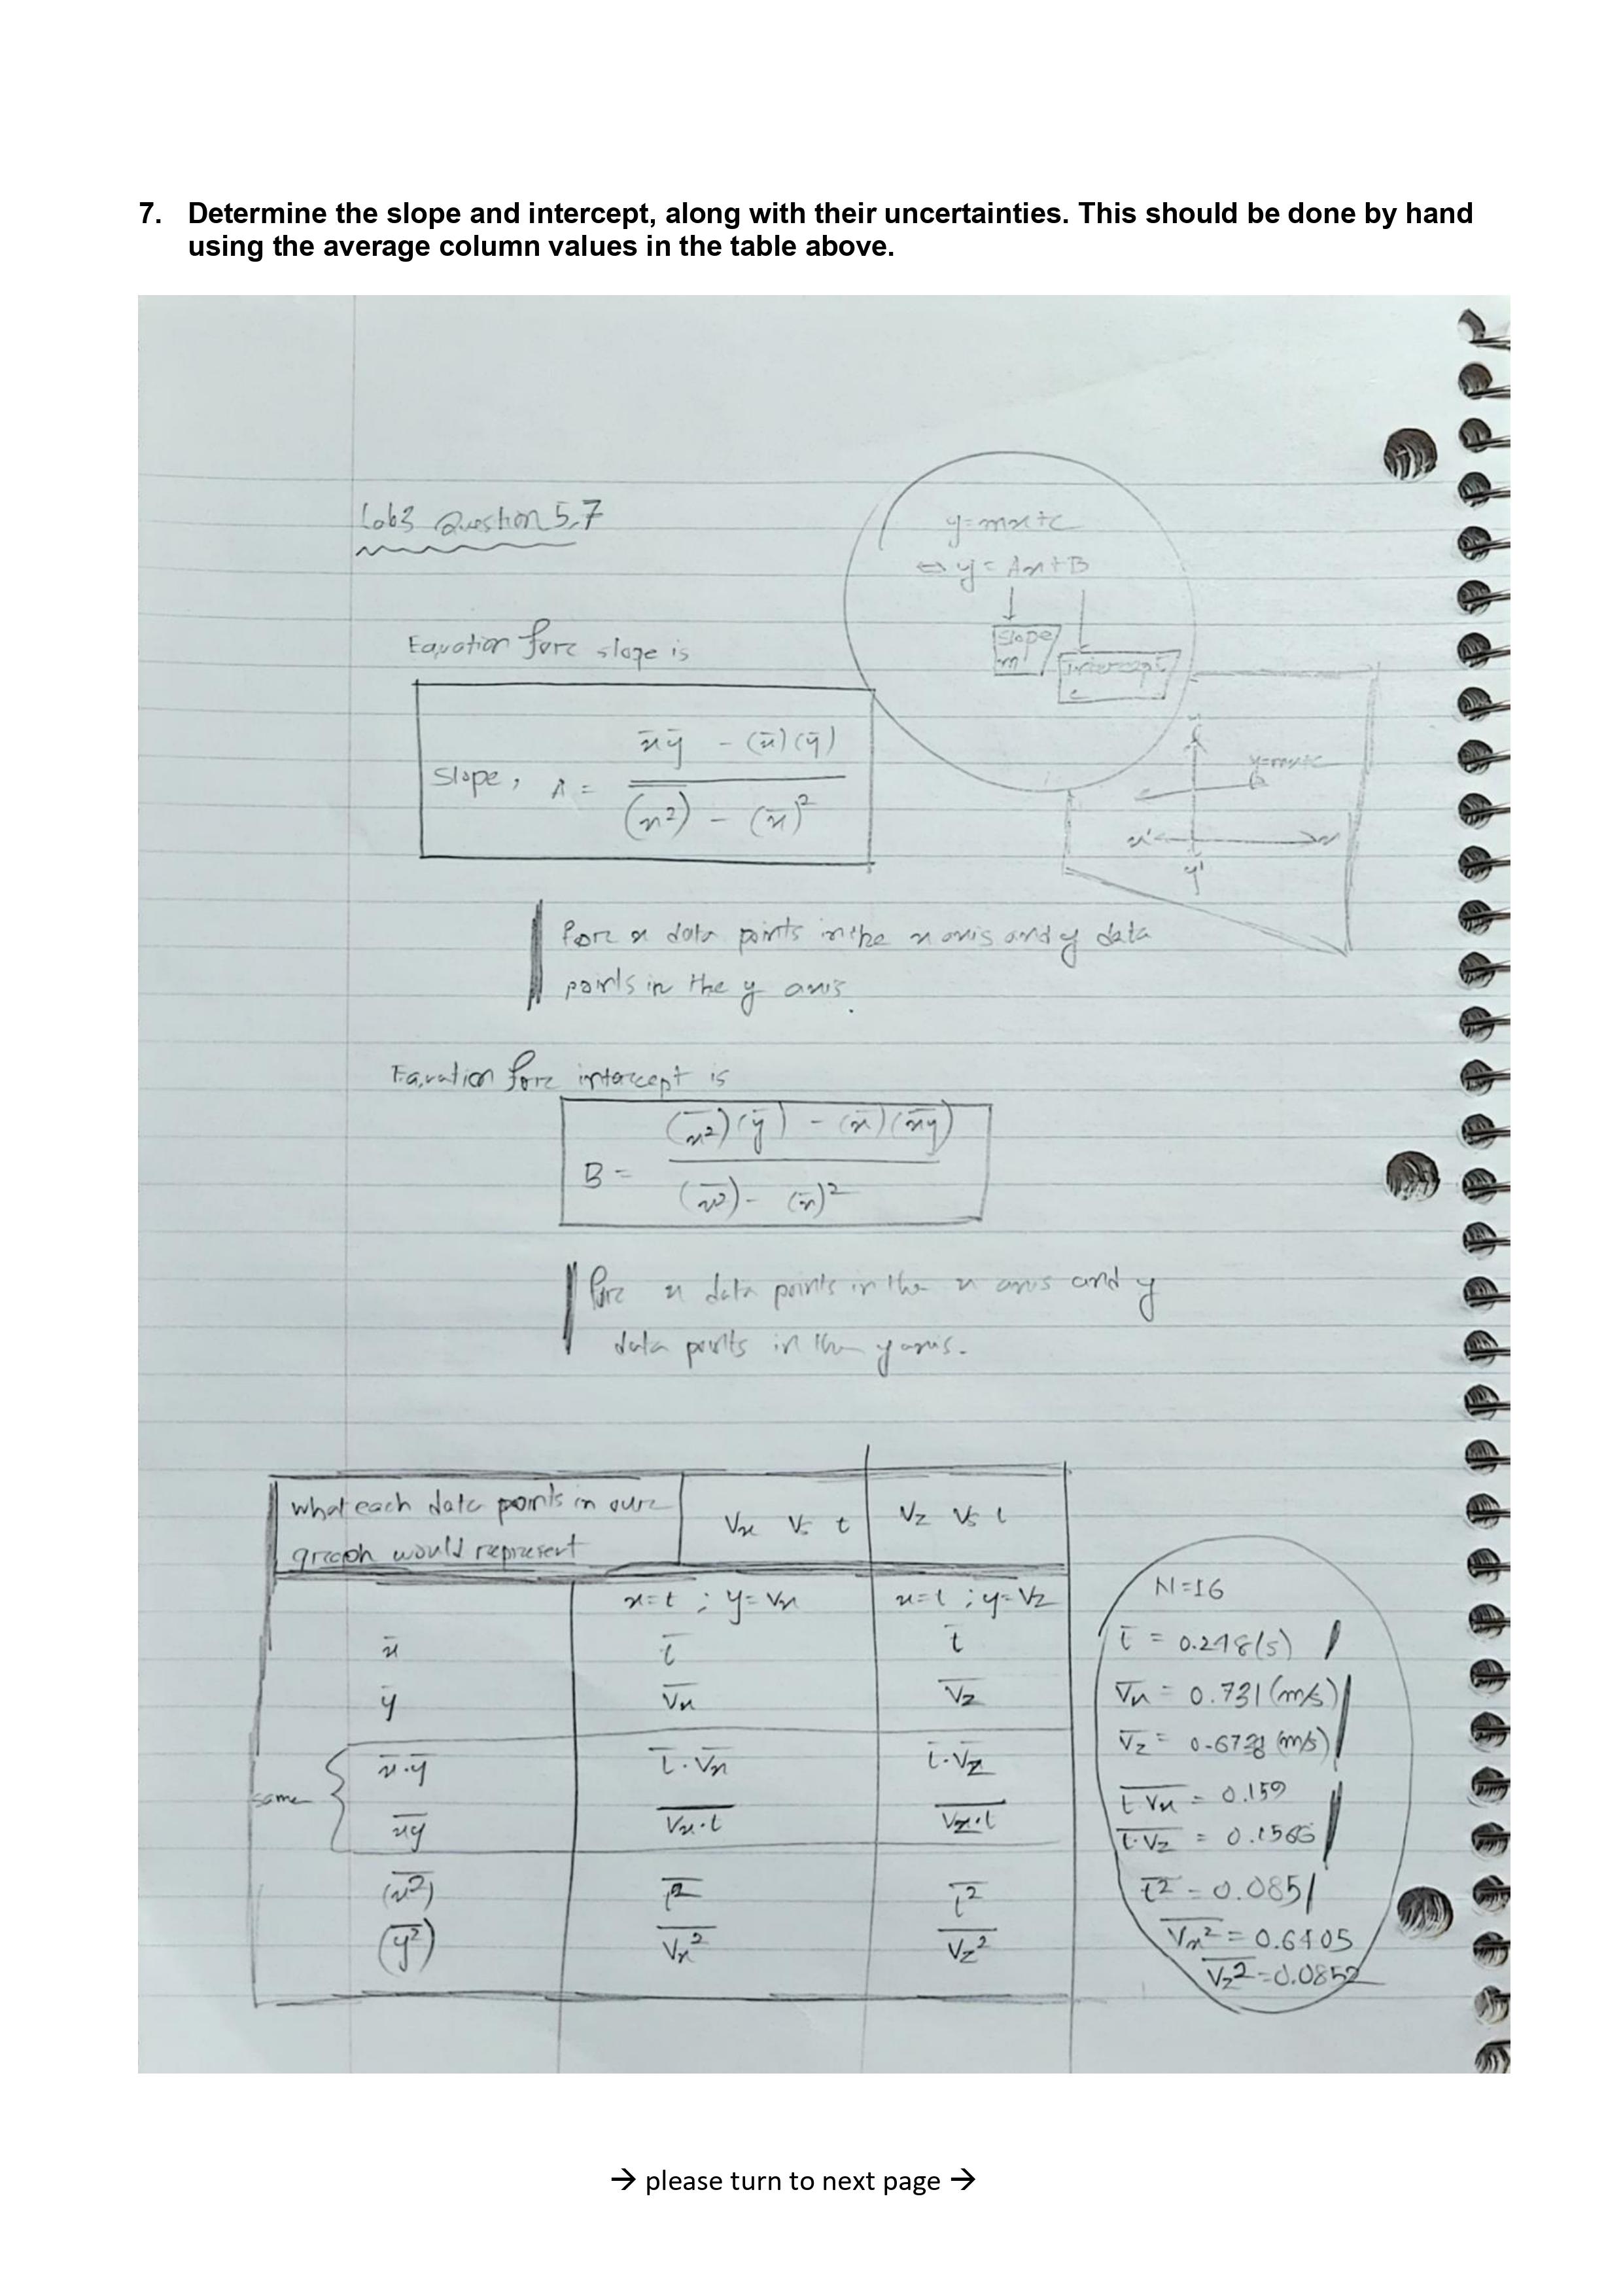 7. Determine the slope and intercept, along with their uncertainties. This should be done by hand
using the average column values in the table above.
Lab3 Question 5.7
y=mx+c
⇔ y = Ax+B
slope
m
intercept
c
Equation forc slope is
Slope, A = (x̄ȳ - (x̄)(ȳ)) / ((x̄²) - (x̄)²)
y=mx+c
x' x
y'
Forc x data points in the x axis and y data
points in the y axis.
Equation forc intercept is
B = ((x̄²)(ȳ) - (x̄)(x̄ȳ)) / ((x̄²) - (x̄)²)
Forc x data points in the x axis and y
data points in the y axis.
What each data points in ourc
graph would represent
Vx Vs t
Vz Vs t
x=t ; y=Vx
x=t ; y=Vz
x̄ t̄ t̄
ȳ V̄x V̄z
x̄·ȳ t̄·V̄x t̄·V̄z
same
x̄ȳ Vx·t Vz·t
(x̄²) t̄² t̄²
(ȳ²) V̄x² V̄z²
N=16
t̄ = 0.248(s)
V̄x = 0.731(m/s)
V̄z = (m/s)
t·Vx = 0.159
t·Vz =
t̄² = 0.085
V̄x² = 0.6405
V̄z² = 0.0852
→ please turn to next page →